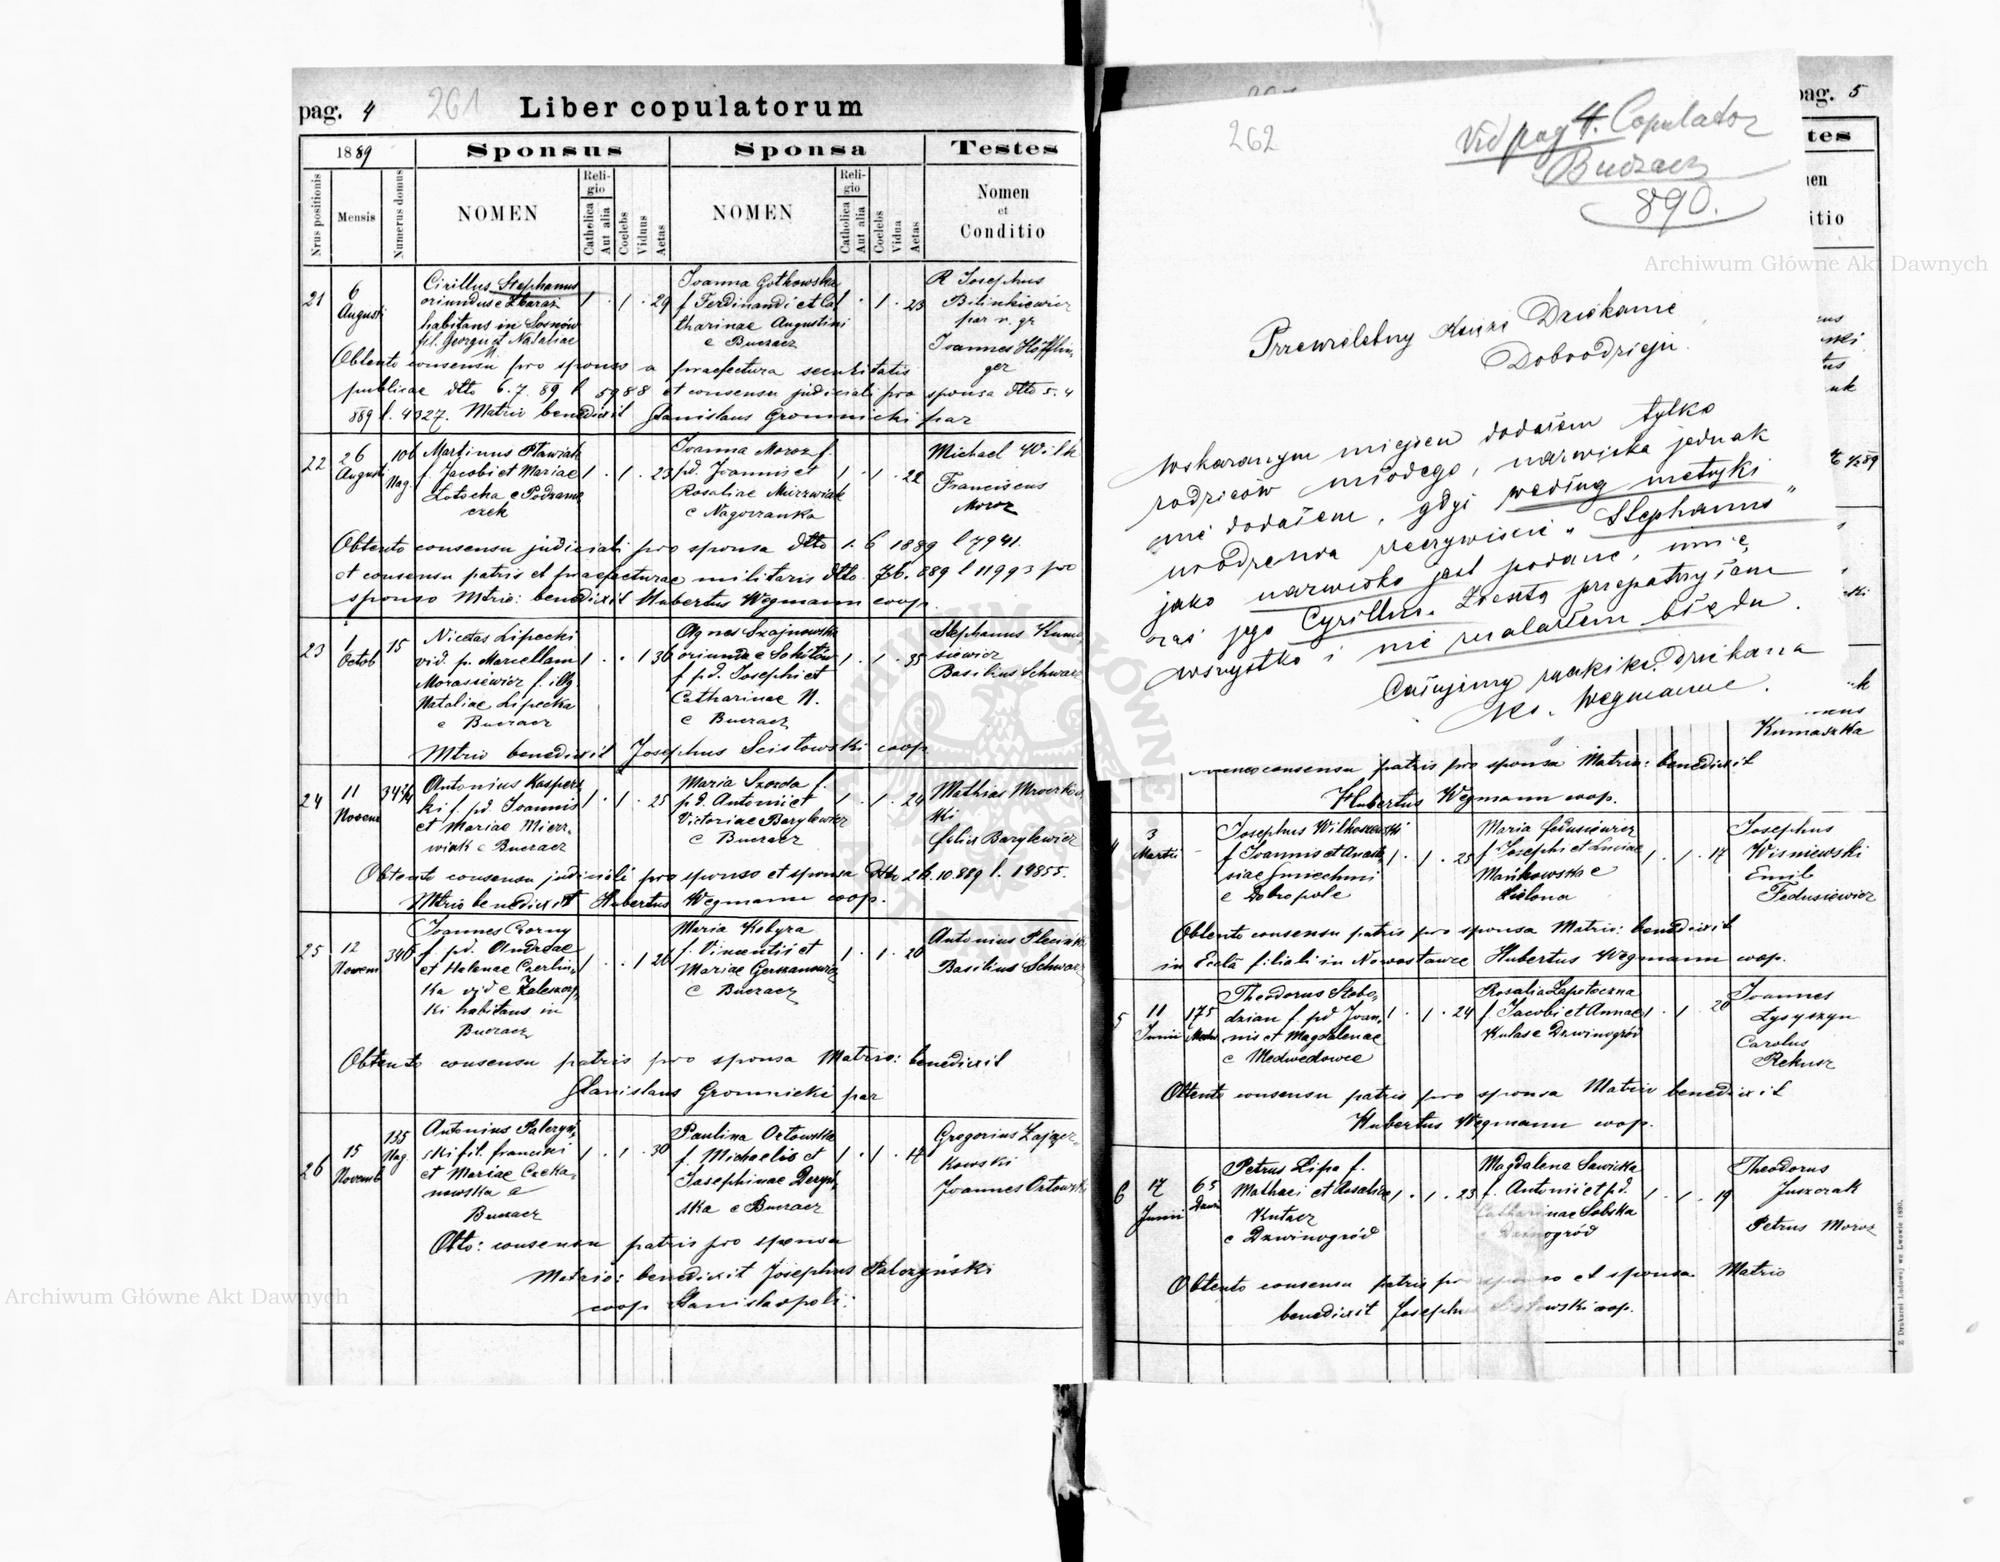 pag. 4 261 Liber copulatorum
1889 Sponsus Sponsa Testes
Nrus positionis
Mensis
Numerus domus
NOMEN
Religio
Catholica
Aut alia
Coelebs
Viduus
Aetas
NOMEN
Religio
Catholica
Aut alia
Coelebs
Vidua
Aetas
Nomen
et
Conditio
21 6 Augusti
Cirillus Stephanus
oriundus e Zbaraz
habitans in Sosnów
fil. Georgii et Nataliae
1 . 1 . 29
Joanna Gotkowska
f Ferdinandi et Ca
tharinae Augustini
e Buczacz
1 . 1 . 23
R Josephus
Bilinkiewicz
par r. gr
Joannes Höfflin,
ger
Obtento consensu pro sponso a praefectura securitatis
publicae dtto 6.7.89 l 5988 et consensu judiciali pro sponsa dtto 5.4
889 l. 4327. Matrio benedixit Stanislaus Gromnicki par
22 26 Augusti 106 Nag.
Martinus Pławiak
f. Jacobi et Mariae
Łotocha e Podzame
czek
1 . 1 . 23
Joanna Moroz f.
pd. Joannis et
Rosaliae Mierzwiak
e Nagorzanka
1 . 1 . 22
Michael Wilk
Franciscus
Moroz
Obtento consensu judiciali pro sponsa dtto 1. 6 1889 l 7941.
et consensu patris et praefecturae militaris dtto 7.6. 889 l 11993 pro
sponso Mtrio: benedixit Hubertus Wegmann coop.
23 1 Octob 15
Nicetas Lipecki
vid. p. Marcellam
Morasiewicz f. illg.
Nataliae Lipecka
e Buczacz
1 . . 1 36
Agnes Szajnowska
oriunda e Sokołów
f pd. Josephi et
Catharinae N.
e Buczacz
1 . 1 . 35
Stephanus Kuni
siewicz
Basilius Schwarz
Mtrio benedixit Josephus Scisłowski coop
24 11 Novem
Antonius Kaspers
ki f. pd. Joannis
et Mariae Mierz,
wiak e Buczacz
1 . 1 . 25
Maria Szozda f.
pd. Antonii et
Victoriae Barylewicz
e Buczacz
1 . 1 . 24
Mathias Mroczkos
ki
Felix Barylewicz
Obtento consensu judiciali pro sponso et sponsa dtto 26.10.889 l. 19855.
Mtrio benedixit Hubertus Wegmann coop.
25 12 Novem 346
Joannes Czorny
f pd. Andreae
et Helenae Czerlin,
ka vid e Zaleszczy
ki habitans in
Buczacz
1 . . 1 26
Maria Kobyra
f. Vincentii et
Mariae Germanowicz
e Buczacz
1 . 1 . 20
Antonius
Basilius Schwarz
Obtento consensu patris pro sponsa Matrio: benedixit
Stanislaus Gromnicki par
26 15 Novemb 135 Nag.
Antonius Palczyń,
ski fil. Francisci
et Mariae Czeka,
nowska e
Buczacz
1 . 1 . 30
Paulina Orłowska
f. Michaelis et
Josephinae Deryń,
ska e Buczacz
1 . 1 . 17
Gregorius Zającz,
kowski
Joannes Orłowski
Obto: consensu patris pro sponsa
Matrio: benedixit Josephus Palczyński
coop Stanislaopoli:
262
Vid pag 4. Copulator
Buczacz
890.
Przewielebny Księże Dziekanie
Dobrodzieju.
wskazanym miejscu dodałem tylko
rodziców młodego, nazwiska jednak
nie dodałem, gdyż według metryki
urodzenia rzeczywiście „Stephanus"
jako nazwisko jest podane, imię
zaś jego Cyrillus. Zresztą przepatrzyłem
wszystko i nie znalazłem błędu.
Całujemy rączki ks. Dziekana
Ks. Wegmann.
pag. 5
Testes
Kumaszka
consensu patris pro sponsa Matrio: benedixit
Hubertus Wegmann coop.
4 3 Martii
Josephus Wilkoszewski
f Joannis et Anasta
siae Smiechni
e Dobropole
1 . 1 . 25
Maria Fedusiewicz
f Josephi et Luciae
Mańkowska e
Zielona
1 . 1 . 17
Josephus
Wisniewski
Emil
Fedusiewicz
Obtento consensu patris pro sponsa Matrio: benedixit
in Eccla filiali in Nowostawce Hubertus Wegmann coop.
5 11 Junii 175
Theodorus Słobo,
dzian f. pd Joan,
nis et Magdalenae
e Medwedowce
1 . 1 . 24
Rosalia Łapotoczna
f Jacobi et Annae
Kulas e Dzwinogród
1 . 1 . 20
Joannes
Łysyszyn
Carolus
Rekusz
Obtento consensu patris pro sponsa Matrio benedixit
Hubertus Wegmann coop.
6 17 Junii 65
Petrus Lipa f.
Mathaei et Rosaliae
Kutacz
e Dzwinogród
1 . 1 . 23
Magdalena Sawicka
f. Antonii et pd.
Catharinae Sobska
e Dzwinogród
1 . 1 . 19
Theodorus
Juszczak
Petrus Moroz
Obtento consensu patris pro sponso et sponsa Matrio
benedixit Josephus Scisłowski coop.
Z Drukarni Ludowej we Lwowie 1890.
Archiwum Główne Akt Dawnych
Archiwum Główne Akt Dawnych